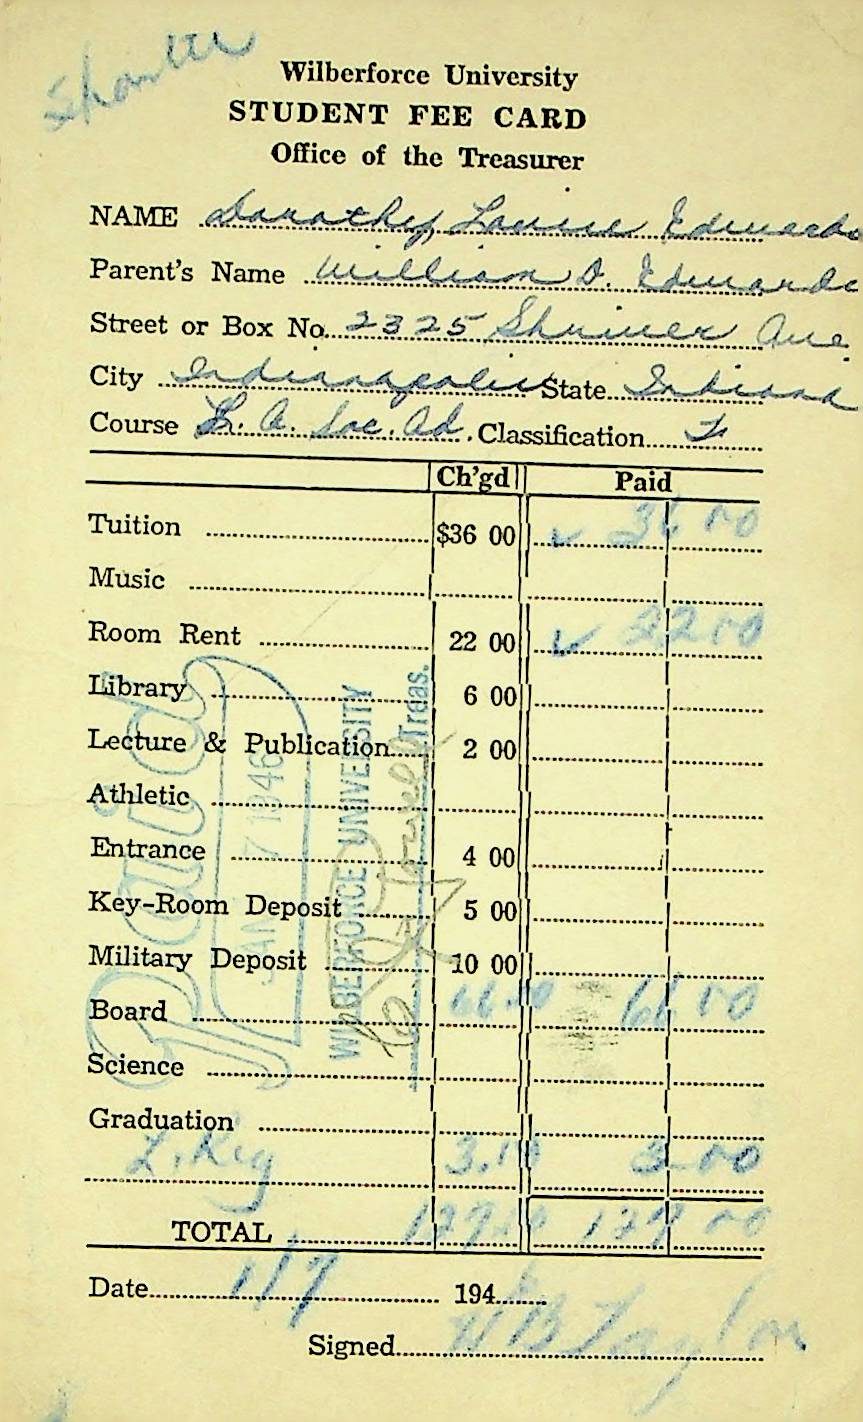 Shorter
Wilberforce University
STUDENT FEE CARD
Office of the Treasurer
NAME Dorothy Louise Edwards
Parent's Name William D. Edwards
Street or Box No. 2325 Shriver Ave.
City Indianapolis State Indiana
Course L. A. Soc. Ad. Classification F
Ch'gd Paid
Tuition $36 00 ✓ 36 00
Music
Room Rent 22 00 ✓ 22 00
Library 6 00
Lecture & Publication 2 00
Athletic
Entrance 4 00
Key-Room Deposit 5 00
Military Deposit 10 00
Board 66 00 66 00
Science
Graduation
L. Reg 3.00 3 00
TOTAL 127 00 127 00
Date 1/7 194
Signed W B Taylor
Paid
JAN 7 1946
WILBERFORCE UNIVERSITY
Treas.